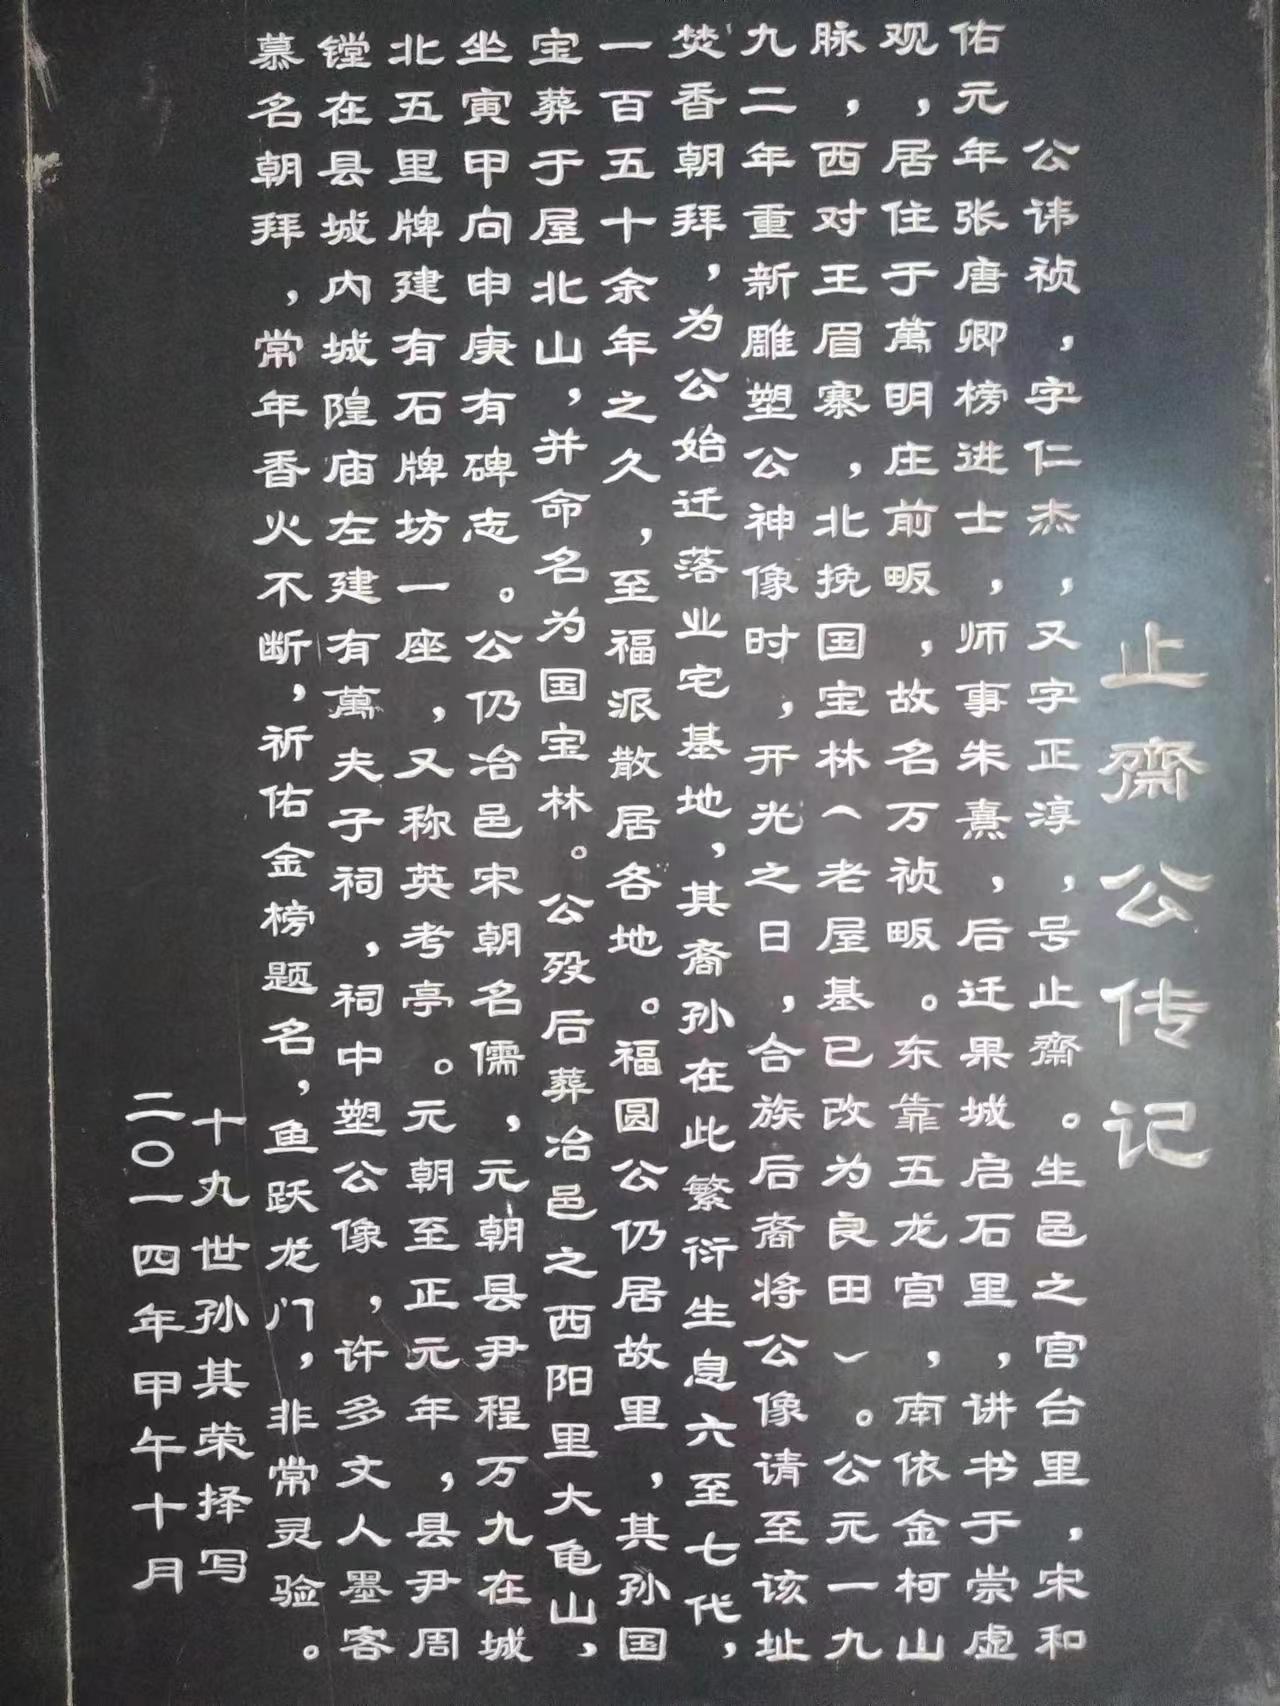 止齋公传记
公讳祯，字仁杰，又字正淳，号止齋。生邑之宫台里，宋和
佑元年张唐卿榜进士，师事朱熹，后迁果城启石里，讲书于崇虚
观，居住于萬明庄前畈，故名万祯畈。东靠五龙宫，南依金柯山
脉，西对王眉寨，北挽国宝林（老屋基已改为良田）。公元一九
九二年重新雕塑公神像时，开光之日，合族后裔将公像请至该址
焚香朝拜，为公始迁落业宅基地，其裔孙在此繁衍生息六至七代，
一百五十余年之久，至福派散居各地。福圆公仍居故里，其孙国
宝葬于屋北山，并命名为国宝林。公殁后葬冶邑之西阳里大龟山，
坐寅甲向申庚有碑志。公仍冶邑宋朝名儒，元朝县尹程万九在城
北五里牌建有石牌坊一座，又称英考亭。元朝至正元年，县尹周
镗在县城内城隍庙左建有萬夫子祠，祠中塑公像，许多文人墨客
慕名朝拜，常年香火不断，祈佑金榜题名，鱼跃龙门，非常灵验。
十九世孙其荣择写
二〇一四年甲午十月